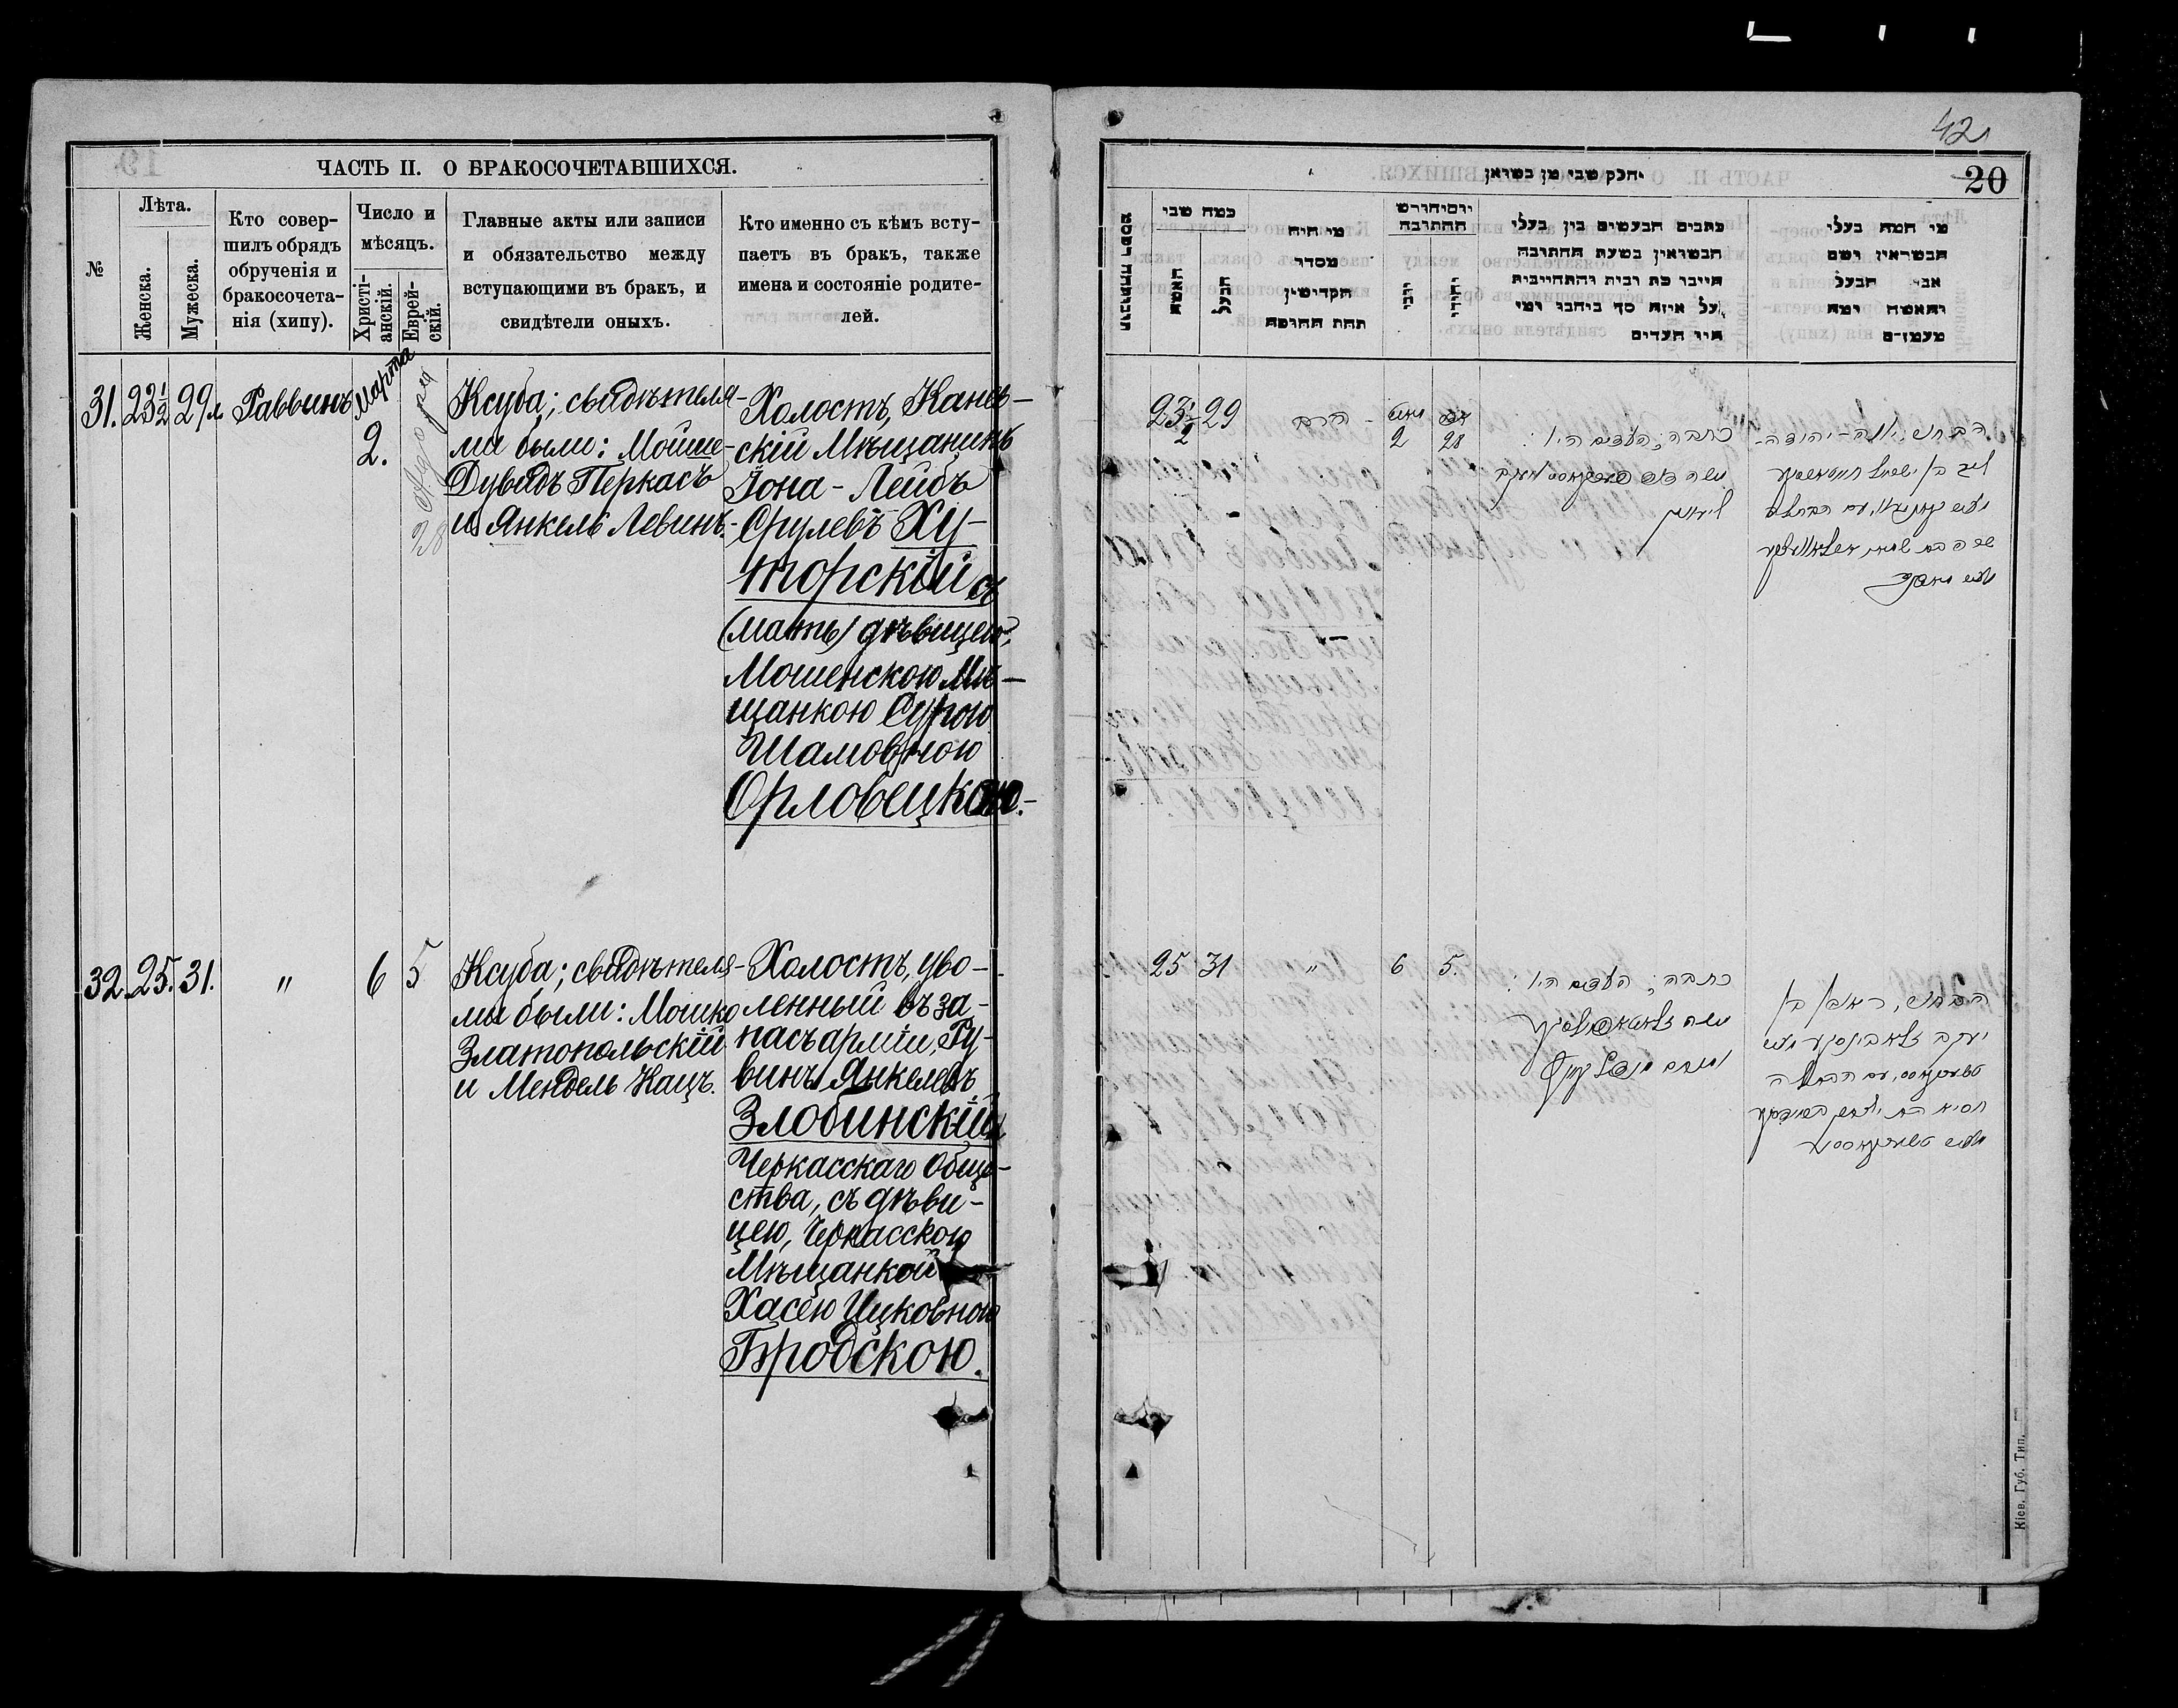 ЧАСТЬ II. О БРАКОСОЧЕТАВШИХСЯ.
№
Лѣта.
Женска.
Мужеска.
Кто совер-
шилъ обрядъ
обрученія и
бракосочета-
нія (хипу).
Число и
мѣсяцъ.
Христі-
анскій.
Еврей-
скій.
Главные акты или записи
и обязательство между
вступающими въ бракъ, и
свидѣтели оныхъ.
Кто именно съ кѣмъ всту-
паетъ въ бракъ, также
имена и состояніе родите-
лей.
31.
23½
29 л
Раввинъ
Марта
2.
28 Адара
Ксуба; свидѣтеля-
ми были: Мойше-
Дувидъ Перкасъ
и Янкель Левинъ.
Холостъ, Канев-
скій Мѣщанинъ
Іона-Лейбъ
Срулевъ Ху-
торскій съ
(мать) дѣвицею,
Мошенскою Мѣ-
щанкою Сурою
Шамовною
Орловецкою.
32.
25.
31.
"
6
5
Ксуба; свидѣтеля-
ми были: Мошко
Златопольскій
и Мендель Кацъ.
Холостъ, уво-
ленный въ за-
пасъ арміи, Ру-
винъ Янкелевъ
Злобинскій
Черкасскаго Обще-
ства, съ дѣви-
цею, Черкасскою
Мѣщанкой
Хасею Ицковною
Бродскою.
42
20
חלק שבי מן בשואן
כמה שבי
האשה
הבעל
מי היה
מסדר
הקדישין
תחת החופה
יום וחודש
החתובה
כתבים הבעשים בין בעלי
הבשואין בשעת החתובה
חייבו כת רבית והתחייבית
על איזה סך ביהבו ומי
היו העדים
מי המה בעלי
הבשואין ושם
אבי הבעל
והאשה ומה
מעמדם
23½
29
הרב
2
28
כתבה; העדים היו:
משה
לעווין
25
31
"
6
5.
כתבה; העדים היו:
משה זלאטאפאלסקי
הבחור, ראובן בן
יעקב זלאבינסקי
Кіев. Губ. Тип.